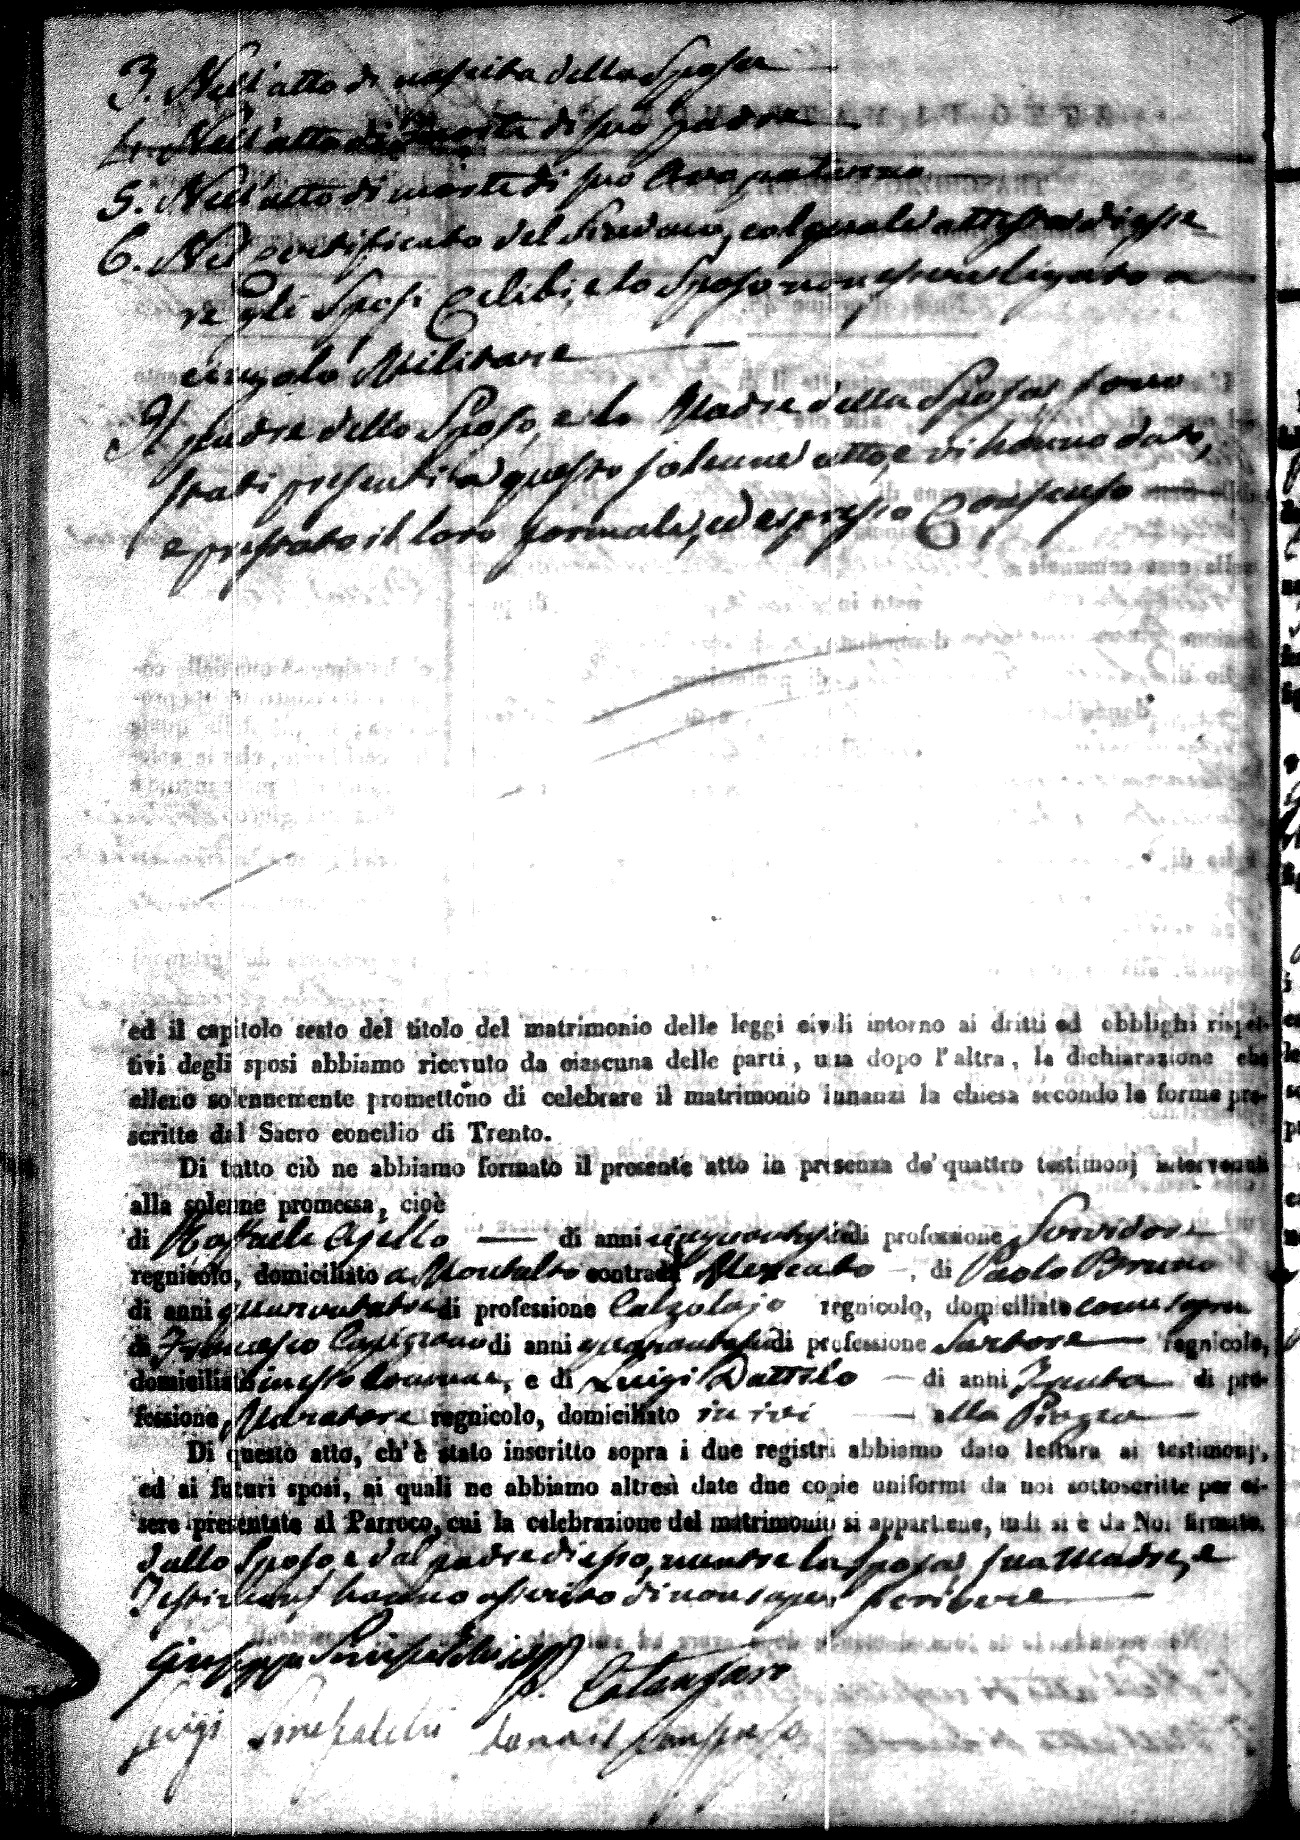 3. Nell'atto di nascita della Sposa
4. Nell'atto di morte di suo padre
5. Nell'atto di morte di suo Avo paterno
6. Nel certificato del Sindaco, col quale attesta di esse
re gli Sposi Celibi, e lo Sposo non essere ligato a
cingolo Militare
Il padre dello Sposo, e la Madre della Sposa, sono
stati presenti a questo solenne atto, e vi hanno dato,
e prestato il loro formale, ed espresso Consenso
ed il capitolo sesto del titolo del matrimonio delle leggi civili intorno ai dritti ed obblighi rispet-
tivi degli sposi abbiamo ricevuto da ciascuna delle parti, una dopo l'altra, la dichiarazione che
elleno solennemente promettono di celebrare il matrimonio innanzi la chiesa secondo le forme pre-
scritte dal Sacro concilio di Trento.
Di tutto ciò ne abbiamo formato il presente atto in presenza de' quattro testimonj intervenuti
alla solenne promessa, cioè
di Raffaele Ajello di anni di professione Servidore
regnicolo, domiciliato a Montalto contrada Mercato, di Paolo Bruno
di anni di professione Calzolajo regnicolo, domiciliato come sopra
di Francesco di anni di professione Sartore regnicolo,
domiciliato in esso Comune, e di Luigi Dattilo di anni Trenta di pro-
fessione Muratore regnicolo, domiciliato in ivi alla
Di questo atto, ch'è stato inscritto sopra i due registri abbiamo dato lettura ai testimonj,
ed ai futuri sposi, ai quali ne abbiamo altresì date due copie uniformi da noi sottoscritte per es-
sere presentate al Parroco, cui la celebrazione del matrimonio si appartiene, indi si è da Noi firmato,
dallo Sposo e dal padre di esso, mentre la Sposa, sua Madre, e
Testimonj hanno asserito di non saper scrivere
Giuseppe
Luigi